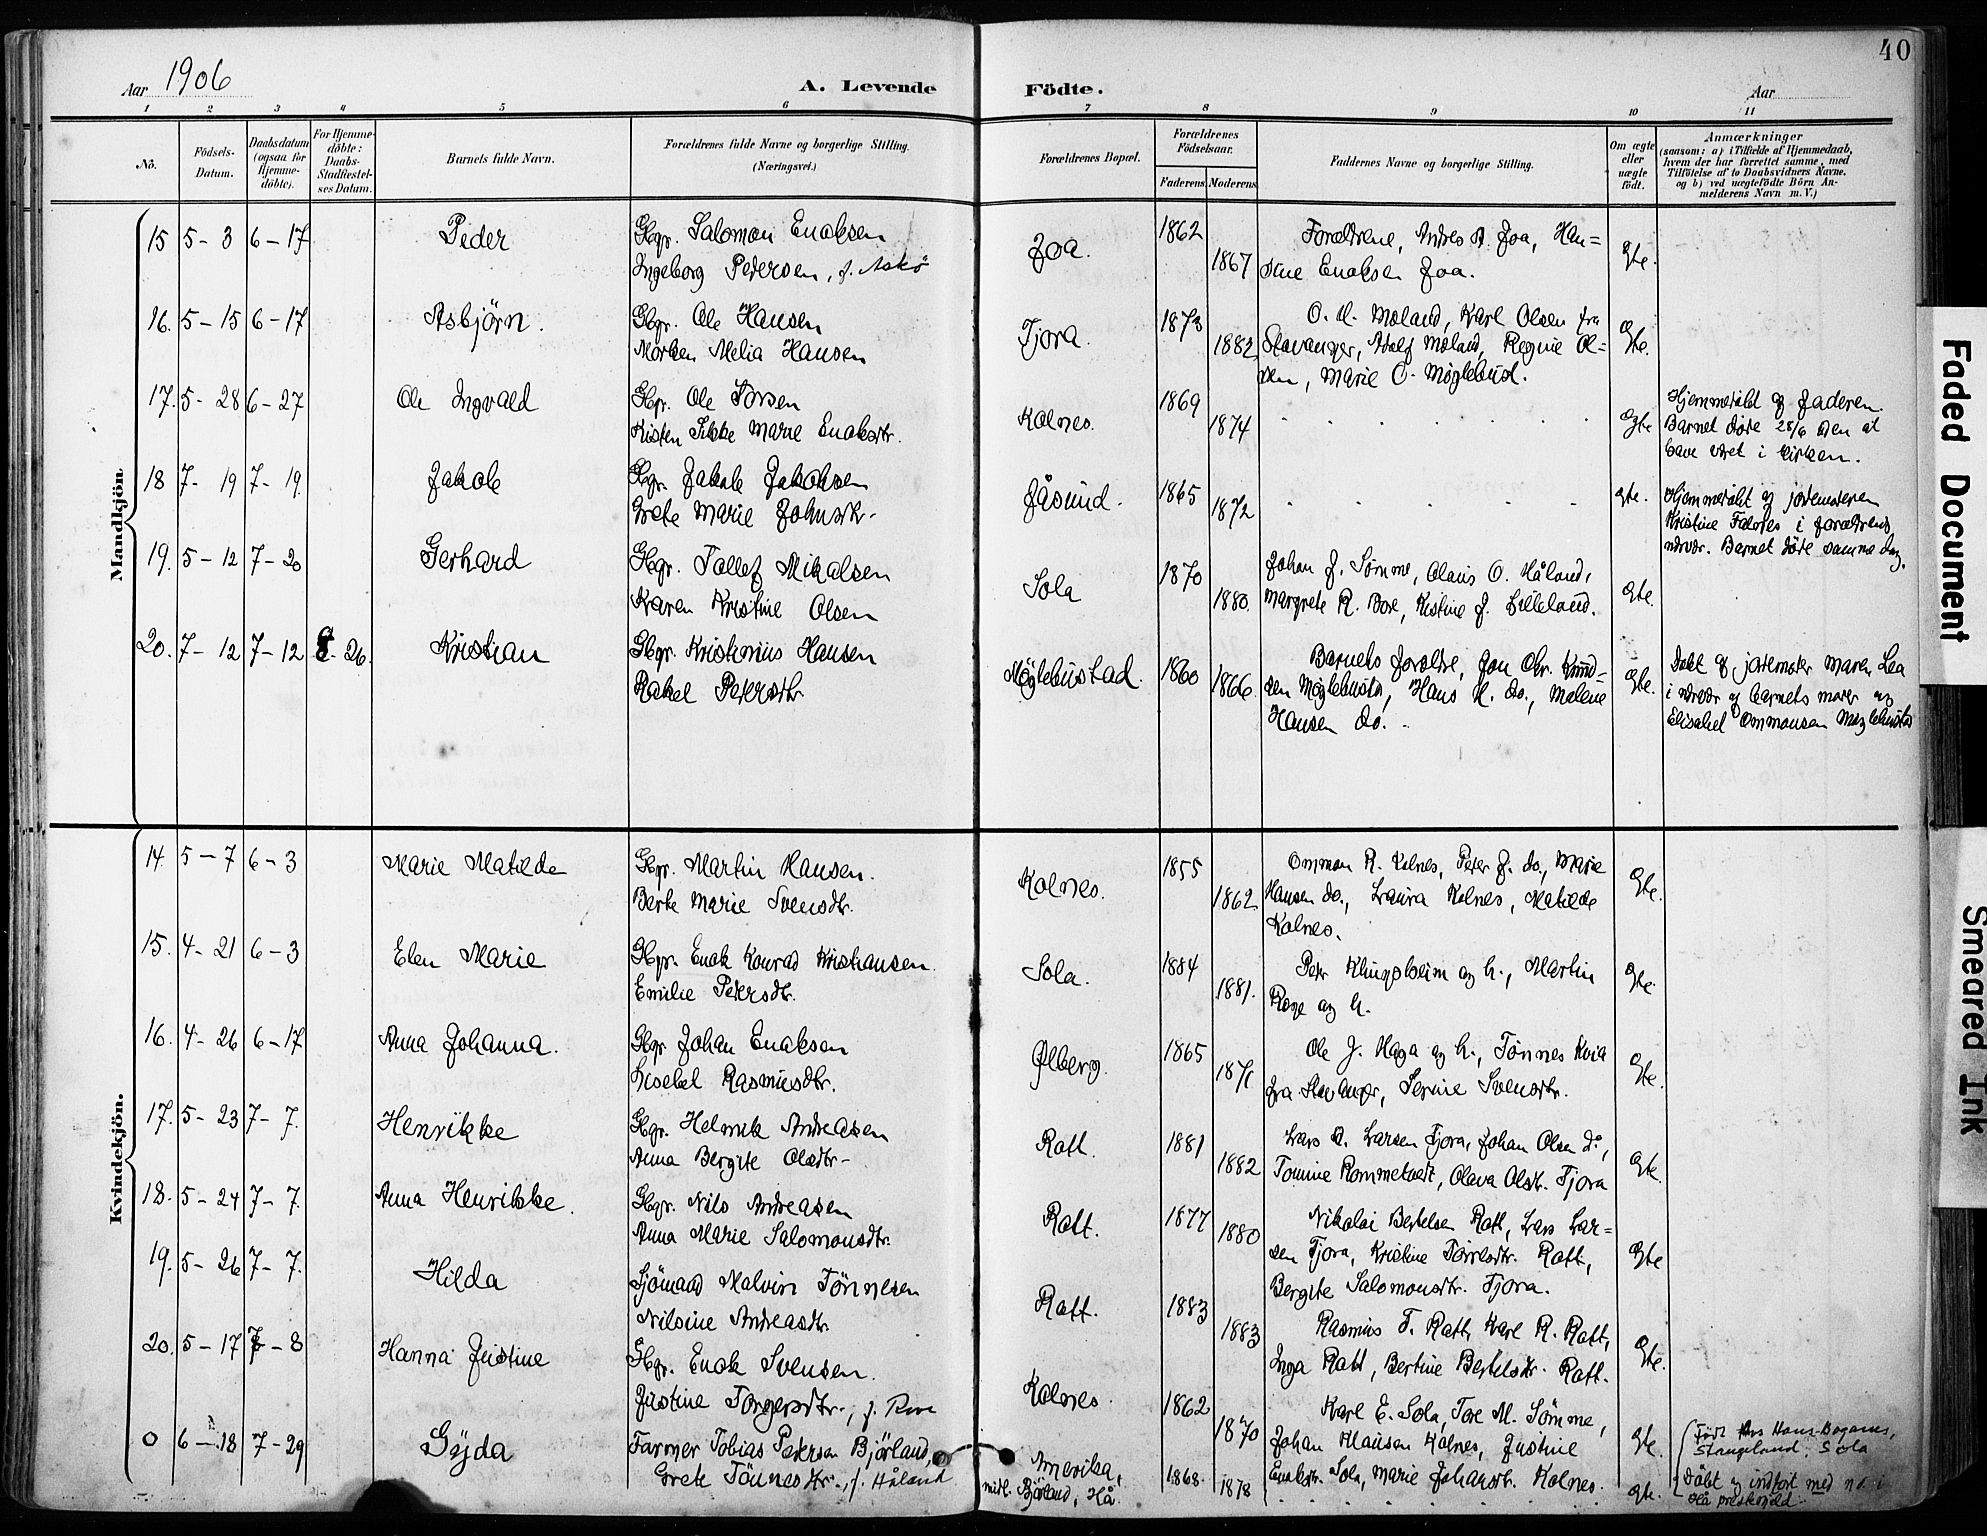 40
Aar 1906
A. Levende Födte.
Aar
1 2 3 4 5 6 7 8 9 10 11
No.
Födsels-Datum.
Daabsdatum (ogsaa for Hjemme-döbte).
For Hjemme-döbte: Daabs-Stadfæstel-ses Datum.
Barnets fulde Navn.
Forældrenes fulde Navne og borgerlige Stilling. (Næringsvei.)
Forældrenes Bopæl.
Forældrenes Födselsaar.
Faderens. Moderens.
Faddernes Navne og borgerlige Stilling.
Om ægte eller uægte födt.
Anmærkninger
(saasom: a) i Tilfælde af Hjemmedaab, hvem der har forrettet samme, med Tilföielse af to Daabsvidners Navne. og b) ved uægtefödte Börn An-melderens Navn m. V.)
Mandkjön
15 5-3 6-17 Peder
Gbgr. Salomon Enoksen
Ingeborg Pedersen, f. Askø
Joa. 1862 1867
Forældrene, Andres A. Joa, Han=
sine Enoksen Joa.
Gte.
16. 5-15 6-17 Asbjörn.
Gbgr. Ole Hansen
Morten Melia Hansen
Tjora. 1873 1882
O. H. Meland, Karl Olsen fra
Stavanger, Adolf Meland, Regine Ol=
sen, Marie O. Møglebust.
Gte.
17. 5-28 6-27 Ole Ingvald
Gbgr. Ole Torsen
Kisten Sikke Marie Enoksdtr.
Kolnes. 1869 1874
Gte
Hjemmedøbt af Faderen.
Barnet døde 28/6 uden at
have været i kirken.
18 7-19 7-19. Jakob
Gbgr. Jakob Jakobsen
Grete Marie Johnsdtr.
Jåsund. 1865 1872
gte.
Hjemmedøbt af jordemoderen
Kristine Folnes i forældrenes
nærvær. Barnet døde samme dag.
19. 5-12 7-20 Gerhard
Gbgr. Tollef Mikalsen
Karen Kristine Olsen
Sola 1870 1880.
Johan J. Sømme, Olaus O. Håland,
Margrete R. Bore, Kistine J. Lilleland.
Gte.
20. 7-12 7-12 8-26. Kristian
Gbgr. Kristinius Hansen
Rakel Petersdtr
Møglebustad. 1860 1866.
Barnets forældre, Jon Chr. Knud=
sen Møglebusta, Hans H. do., Malene
Hansen do.
Gte.
Døbt af jordemoder Maren Lea
i nærvær af barnets moder og
Elisabet Ommonsen Møglebusta
Kvindekjön.
14. 5-7 6-3 Marie Matilde
Gbgr. Martin Hansen.
Berte Marie Svensdtr.
Kolnes. 1855 1862
Ommon R. Kolnes, Peter J. do., Marie
Hansen do., Laura Kolnes, Matilde
Kolnes.
Gte.
15. 4-21 6-3 Elen Marie
Gbgr. Enok Konrad Kristiansen.
Emilie Petersdtr.
Sola. 1884 1881.
Peter Klungsheim og h., Martin
Rege og h.
Gte.
16. 4-26 6-17 Anna Johanna.
Gbgr Johan Enoksen
Lisebet Rasmusdtr.
Ølberg. 1865 1871
Ole J. Haga og h., Tønnes Kvia
fra Stavanger, Serine Svensdtr.
Gte.
17. 5-23 7-7. Henrikke
Gbgr. Helmik Andreasen
Anna Bergite Olsdtr
Rott. 1881 1882
Lars A. Larsen Tjora, Johan Olsen do,
Tomine Rommetvedt, Oleva Olsdtr. Tjora
Gte.
18. 5-24 7-7. Anna Henrikke.
Gbgr. Nils Andreasen
Anna Marie Salomonsdtr.
Rott. 1877 1880
Nikolai Bertelsen Rott, Lars Lar=
sen Tjora, Kristine Torresdtr. Rott,
Bergite Salomonsdtr. Tjora.
Gte
19. 5-26 7-7. Hilda
Sjömand Malvin Tönnesen
Nilsine Andreasdtr.
Rott. 1883 1883
Rasmus T. Rott, Karl R. Rott,
Inga Rott, Bertine Bertelsdtr. Rott.
Gte.
20. 5-17 7-8 Hanna Justine
Gbgr. Enok Svensen.
Justine Torgersdtr., f. Rove
Kolnes. 1862 1870
Karl E. Sola, Tore M. Sömme,
Johan Klausen Kolnes, Justine
Enoksdtr. Sola, Marie Johansdtr. Kolnes.
Gte.
0 6-18 7-29 Gyda
Farmer Tobias Petersen Bjørland,
Grete Tönnesdtr., f. Håland
Amerika,
midl. Bjørland, Hå. 1868. 1878
Gte.
Født hos Hans Boganes,
Stangeland, Sola
Døbt og indført med no. i
Hå prestegjeld.
Faded Document
Smeared Ink